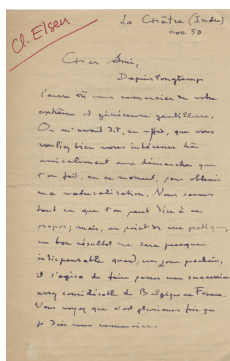 Cl. Elsen
La Châtre (Indre)
nov. 50
Cher Ami,
Depuis longtemps
j'aurais dû vous remercier de votre
extrême et généreuse gentillesse.
On m'avait dit, en effet, que vous
vouliez bien vous intéresser très
amicalement aux démarches que
l'on fait, en ce moment, pour obtenir
ma naturalisation. Vous savez
tout ce que l'on peut dire à ce
propos; mais, au point de vue pratique,
un bon résultat me sera presque
indispensable quand, un jour prochain,
il s'agira de faire passer une succession
assez considérable de Belgique en France.
Vous voyez que c'est plusieurs fois que
je dois vous remercier.